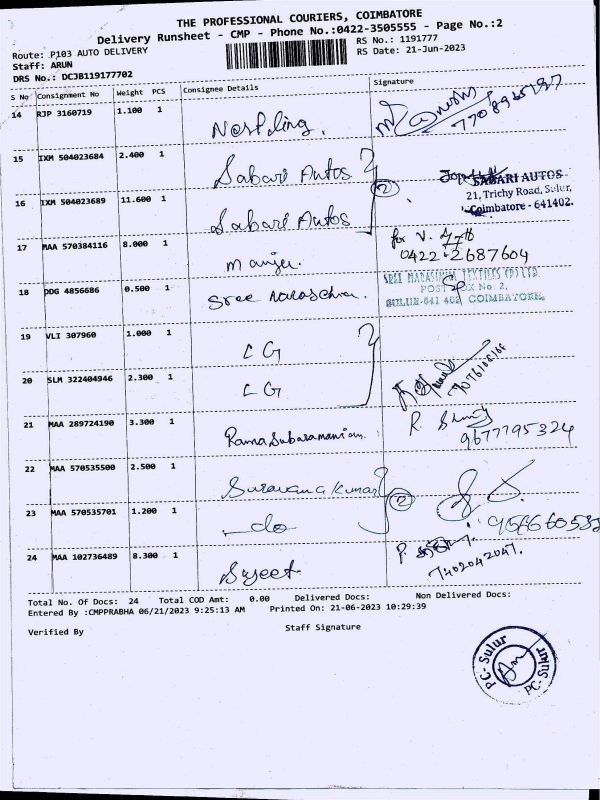 THE PROFESSIONAL COURIERS, COIMBATORE
Delivery Runsheet - CMP - Phone No.:0422-3505555 - Page No.:2
Route: P103 AUTO DELIVERY
RS No.: 1191777
Staff: ARUN
RS Date: 21-Jun-2023
DRS No.: DCJB119177702
S No Consignment No Weight PCS Consignee Details Signature
14 RJP 3160719 1.100 1
7708965297
15 IXM 504023684 2.400 1 Sabari Autos
SABARI AUTOS
21, Trichy Road, Sulur,
Coimbatore - 641402.
16 IXM 504023689 11.600 1 Sabari Autos
2
17 MAA 570384116 8.000 1 manju.
for V.
0422-2687604
18 DDG 4856686 0.500 1 Sree
SREE NARASIMHA TEXTILES (P) LTD.
POST BOX No. 2,
SULUR-641 402 COIMBATORE.
19 VLI 307960 1.000 1 LG
20 SLM 322404946 2.300 1 LG
21 MAA 289724190 3.300 1 Ramasubaramaniam.
R.
9677795324
22 MAA 570535500 2.500 1 Suravana Kumar
2
23 MAA 570535701 1.200 1 -do-
24 MAA 102736489 8.300 1
P.
7402042047.
Total No. Of Docs: 24 Total COD Amt: 0.00 Delivered Docs: Non Delivered Docs:
Entered By :CMPPRABHA 06/21/2023 9:25:13 AM Printed On: 21-06-2023 10:29:39
Verified By Staff Signature
PC-Sulur
PC-Sulur